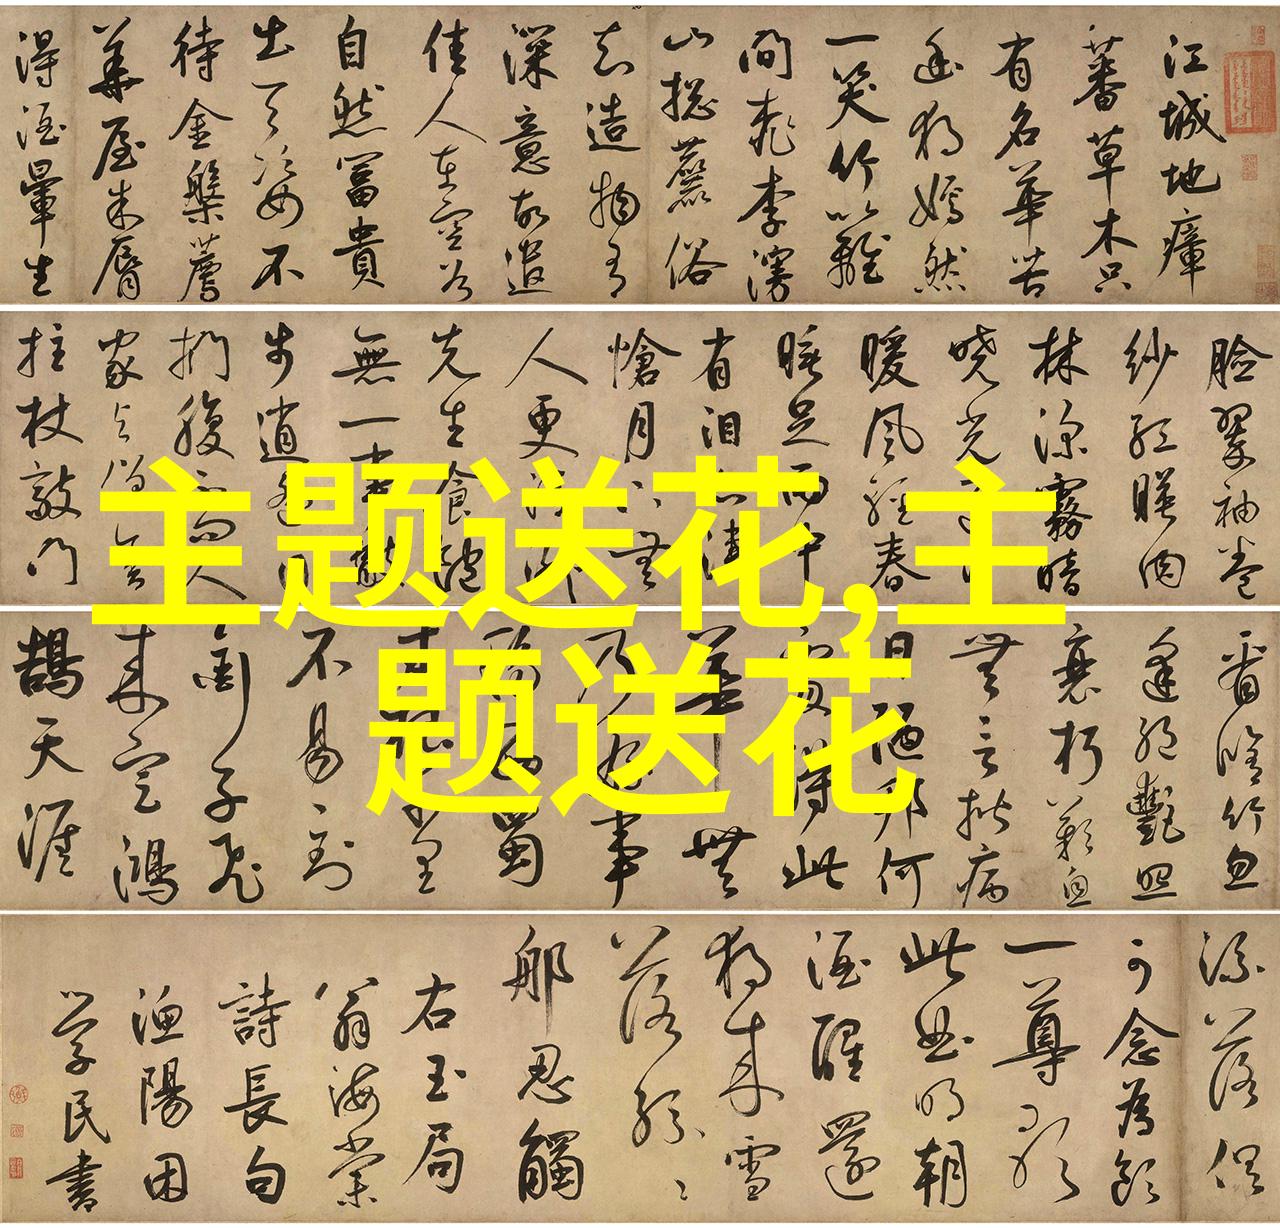 江城地瘴
蕃草木只
有名華苦
幽独嫣然
一笑竹籬
間桃李漫
山揔麤俗
知造物有
深意故遣
佳人在空谷
自然冨貴
出天姿不
待金盤薦
華屋朱脣
得酒暈生
臉翠袖卷
紗紅暎肉
林深霧暗
曉光遲日
暖風輕春
睡足雨中
有淚亦悽
愴月下無
人更清淑
先生食飽
無一事散
步逍遥自
捫腹不問人
家与僧舍
拄杖敲門
看脩竹忽
逢絕艷照
衰朽歎息
無言揩病
目陋邦何
處得此
華無
乃好事
移西蜀
寸根千里
不易到
銜子飛
來定鴻
鵠天涯
流落俱
可念為飲
一尊歌
此曲明朝
酒醒還
獨來雪
落紛〻
那忍觸
右玉局
翁海棠
詩長句
漁陽困
學民書
主题送花,主
题送花